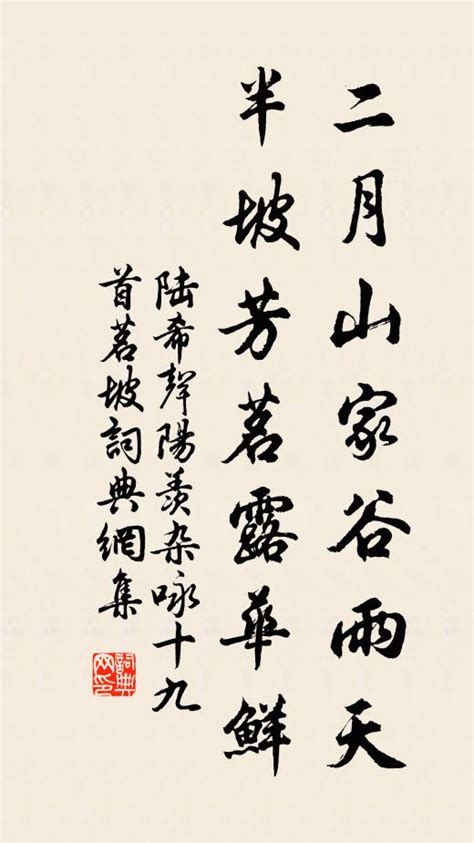 二月山家谷雨天
半坡芳茗露華鮮
陆希聲陽羨杂咏十九
首茗坡詞典網集
詞典
网印